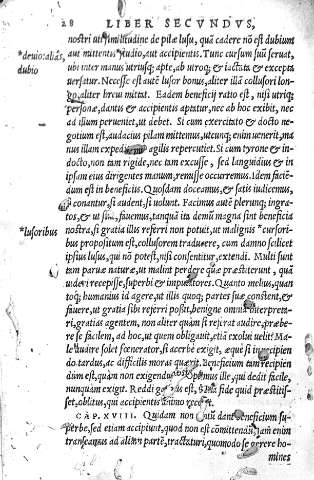 28 LIBER SECVNDVS,
nostri uti similitudine de pilæ lusu, quā cadere nō est dubium
*deuio: aliâs, aut mittentis studio, aut accipientis. Tunc cursum suū seruat,
dubio ubi inter manus utriusq; apte, ab utroq; & iactata & excepta
uersatur. Necesse est autē lusor bonus, aliter illā collusori lon-
go, aliter breui mittat. Eadem beneficij ratio est, nisi utriq;
personæ, dantis & accipientis aptatur, nec ab hoc exibit, nec
ad illum perueniet, ut debet. Si cum exercitato & docto ne-
gotium est, audacius pilam mittemus, utcunq; enim uenerit, ma
nus illam expedita & agilis repercutiet. Si cum tyrone & in-
docto, non tam rigide, nec tam excusse, sed languidius & in
ipsam eius dirigentes manum, remisse occurremus. Idem facien-
dum est in beneficiis. Quosdam doceamus, & satis iudicemus,
si conantur, si audent, si uolunt. Facimus autē plerunq; ingra-
tos, & ut sint, fauemus, tanquā ita demū magna sint beneficia
*lusoribus nostra, si gratia illis referri non potuit, ut malignis *cursori-
bus propositum est, collusorem traducere, cum damno scilicet
ipsius lusus, qui nō potest, nisi consentitur, extendi. Multi sunt
tam prauæ naturæ, ut malint perdere quæ præstiterunt, quā
uideri recepisse, superbi & imputatores. Quanto melius, quan
toq; humanius id agere, ut illis quoq; partes suæ constent, &
fauere, ut gratia sibi referri possit, benigne omnia interpreta-
ri, gratias agentem, non aliter quàm si referat audire, præbe-
re se facilem, ad hoc, ut quem obligauit, etiā exolui uelit! Ma-
le audire solet fœnerator, si acerbe exigit, æque si in recipien
do tardus, ac difficilis moras quærit. Beneficium tam recipien
dum est, quàm non exigendum. Optimus ille, qui dedit facile,
nunquam exigit. Reddi gauisus est, bona fide quid præstitis-
set, oblitus, qui accipientis animo recepit.
CAP. XVIII. Quidam non tantū dant beneficium su-
perbe, sed etiam accipiunt, quod non est committendū. Iam enim
transeamus ad alterā partē, tractaturi, quomodo se gerere ho-
mines